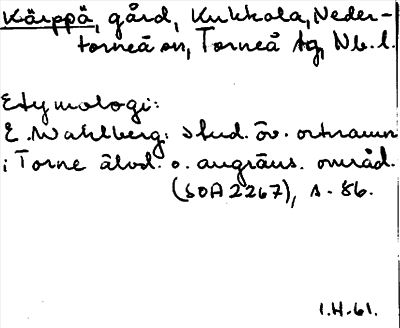 Kärppä, gård, Kukkola, Neder-
torneå sn, Torneå tg, Nb. l.
Etymologi:
E. Wahlberg: stud. öv. ortnamn
i Torne älvd. o. angräns. områd.
(SOA 2267), s. 86.
1.H.61.